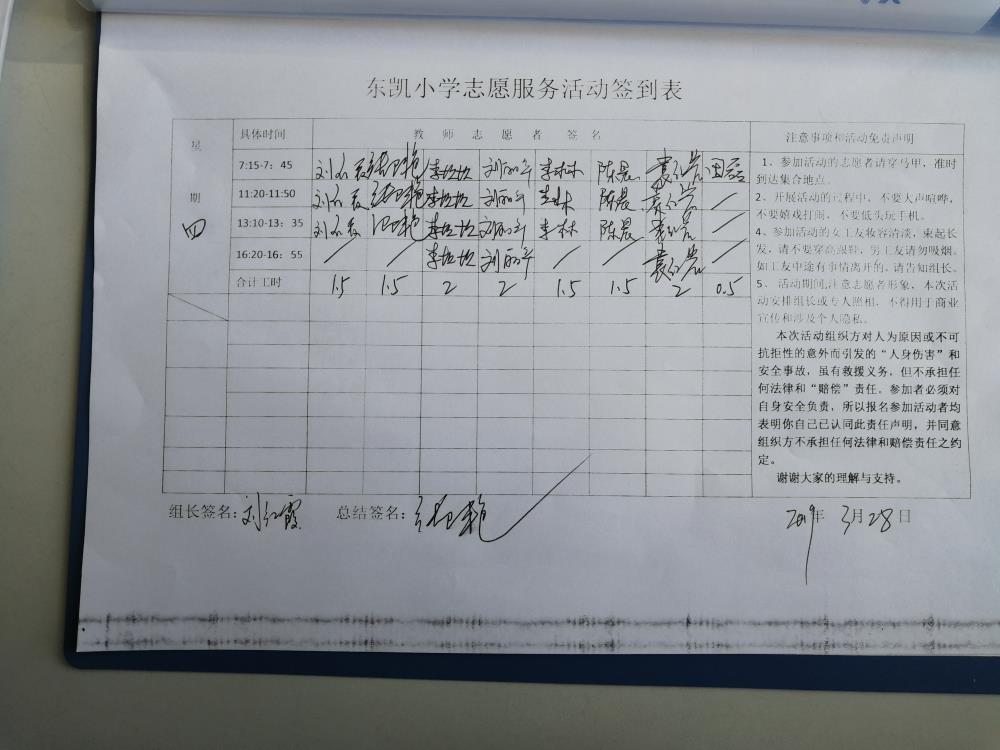 东凯小学志愿服务活动签到表
星期四
具体时间 教师志愿者签名 注意事项和活动免责声明
7:15-7：45 李林 陈晨
11:20-11:50 陈晨
13:10-13：35 李林 陈晨
16:20-16：55
合计工时 1.5 1.5 2 2 1.5 1.5 2 0.5
1、参加活动的志愿者请穿马甲，准时
到达集合地点。
2、开展活动的过程中，不要大声喧哗，
不要嬉戏打闹，不要低头玩手机。
4、参加活动的女工友妆容清淡，束起长
发，请不要穿高跟鞋，男工友请勿吸烟。
如工友中途有事情离开的，请告知组长。
5、活动期间,注意志愿者形象，本次活
动安排组长或专人照相，不得用于商业
宣传和涉及个人隐私。
本次活动组织方对人为原因或不可
抗拒性的意外而引发的“人身伤害”和
安全事故，虽有救援义务，但不承担任
何法律和“赔偿”责任。参加者必须对
自身安全负责，所以报名参加活动者均
表明你自己已认同此责任声明，并同意
组织方不承担任何法律和赔偿责任之约
定。
谢谢大家的理解与支持。
组长签名：刘红霞 总结签名： 2019年 3月28日